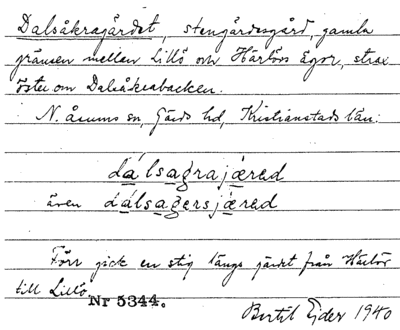 Dalsåkragärdet, stengärdesgård, gamla
gränsen mellan Lillö och Härlövs ägor, strax
öster om Dalsåkrabacken.
N. Åsums sn, Gärds hd, Kristianstads län.
dálsagrajæred
även dálsagersjæred
Förr gick en stig längs gärdet från Härlöv
till Lillö
Nr 5344.
Bertil Ejder 1940